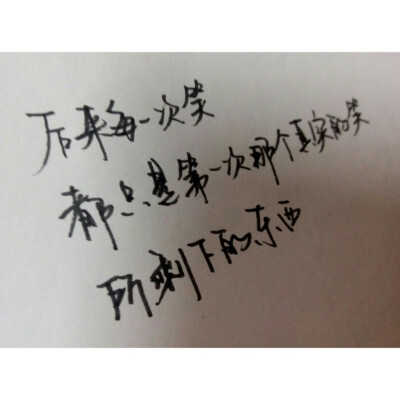 后来每一次笑
都只是第一次那个真实的笑
所剩下的东西